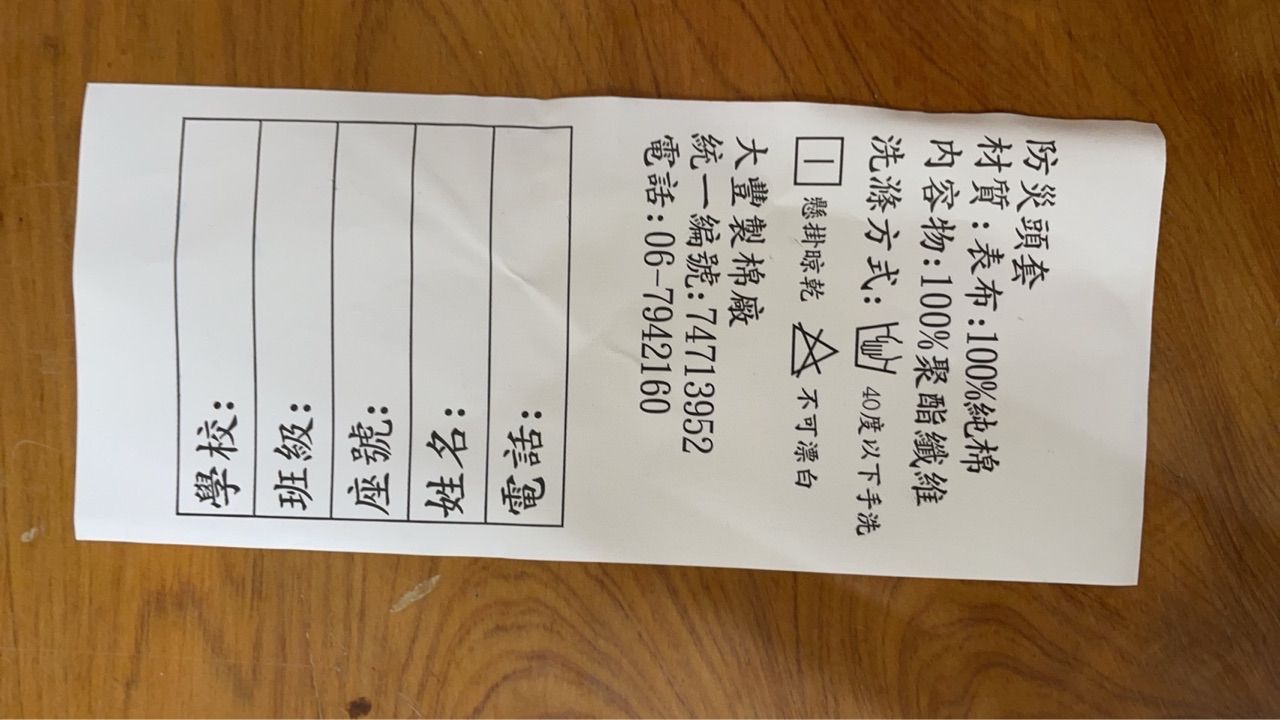 防災頭套
材質:表布:100%純棉
內容物:100%聚酯纖維
洗滌方式: 40度以下手洗
懸掛晾乾 不可漂白
大豐製棉廠
統一編號:74713952
電話:06-7942160
學校:
班級:
座號:
姓名:
電話: